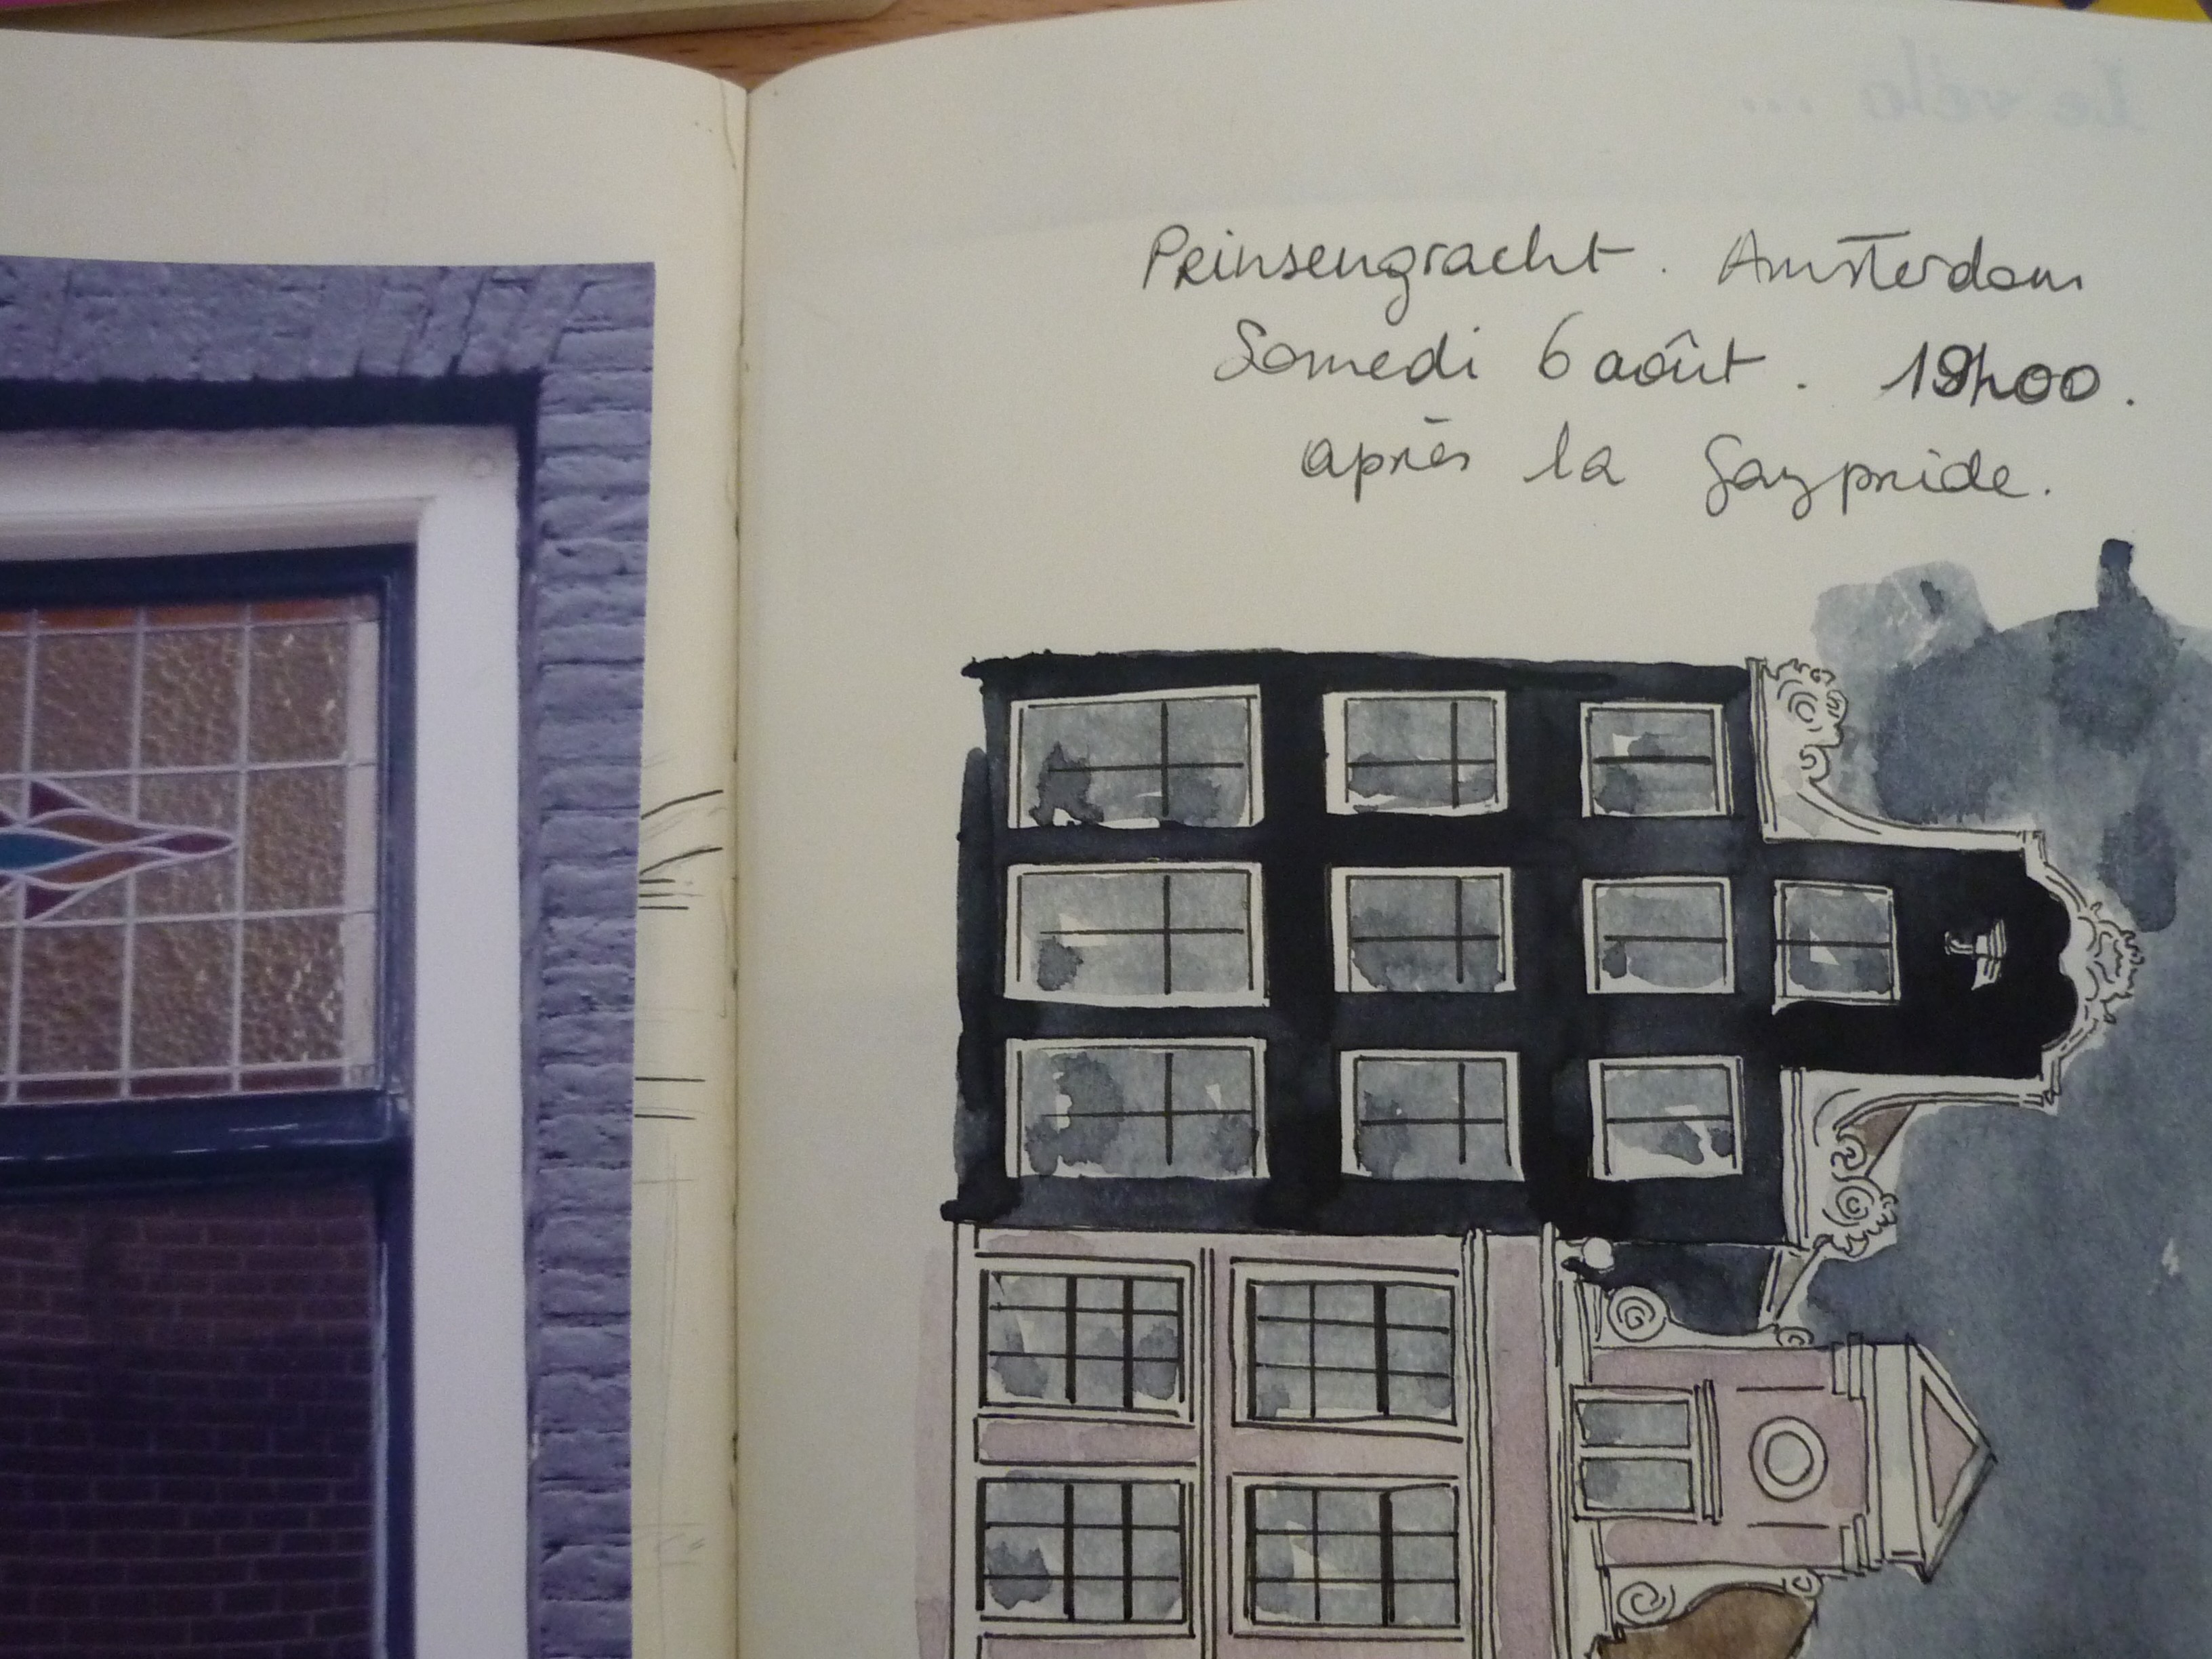 Prinsengracht. Amsterdam
Samedi 6 août. 19h00.
après la Gaypride.
Le vélo ...